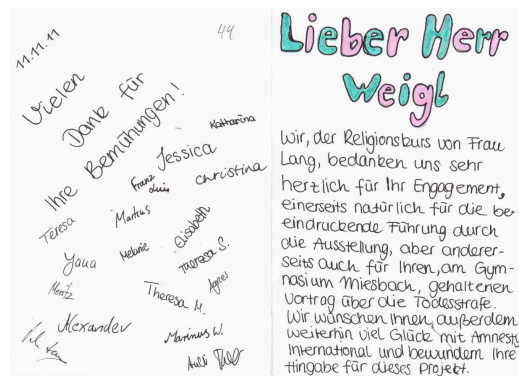 11.11.11
44
Vielen
Dank für
Ihre Bemühungen!
Katharina
Jessica
Franz
Luis
Christina
Teresa
Markus
Elisabeth
Jana
Melanie
Theresa S.
Moritz
Theresa M.
Agnes
Alexander
Marinus W.
Lieber Herr
Weigl
Wir, der Religionskurs von Frau
Lang, bedanken uns sehr
herzlich für Ihr Engagement,
einerseits natürlich für die be-
eindruckende Führung durch
die Ausstellung, aber anderer-
seits auch für Ihren, am Gym-
nasium Miesbach, gehaltenen
Vortrag über die Todesstrafe.
Wir wünschen Ihnen, außerdem
weiterhin viel Glück mit Amnesty
International und bewundern Ihre
Hingabe für dieses Projekt.